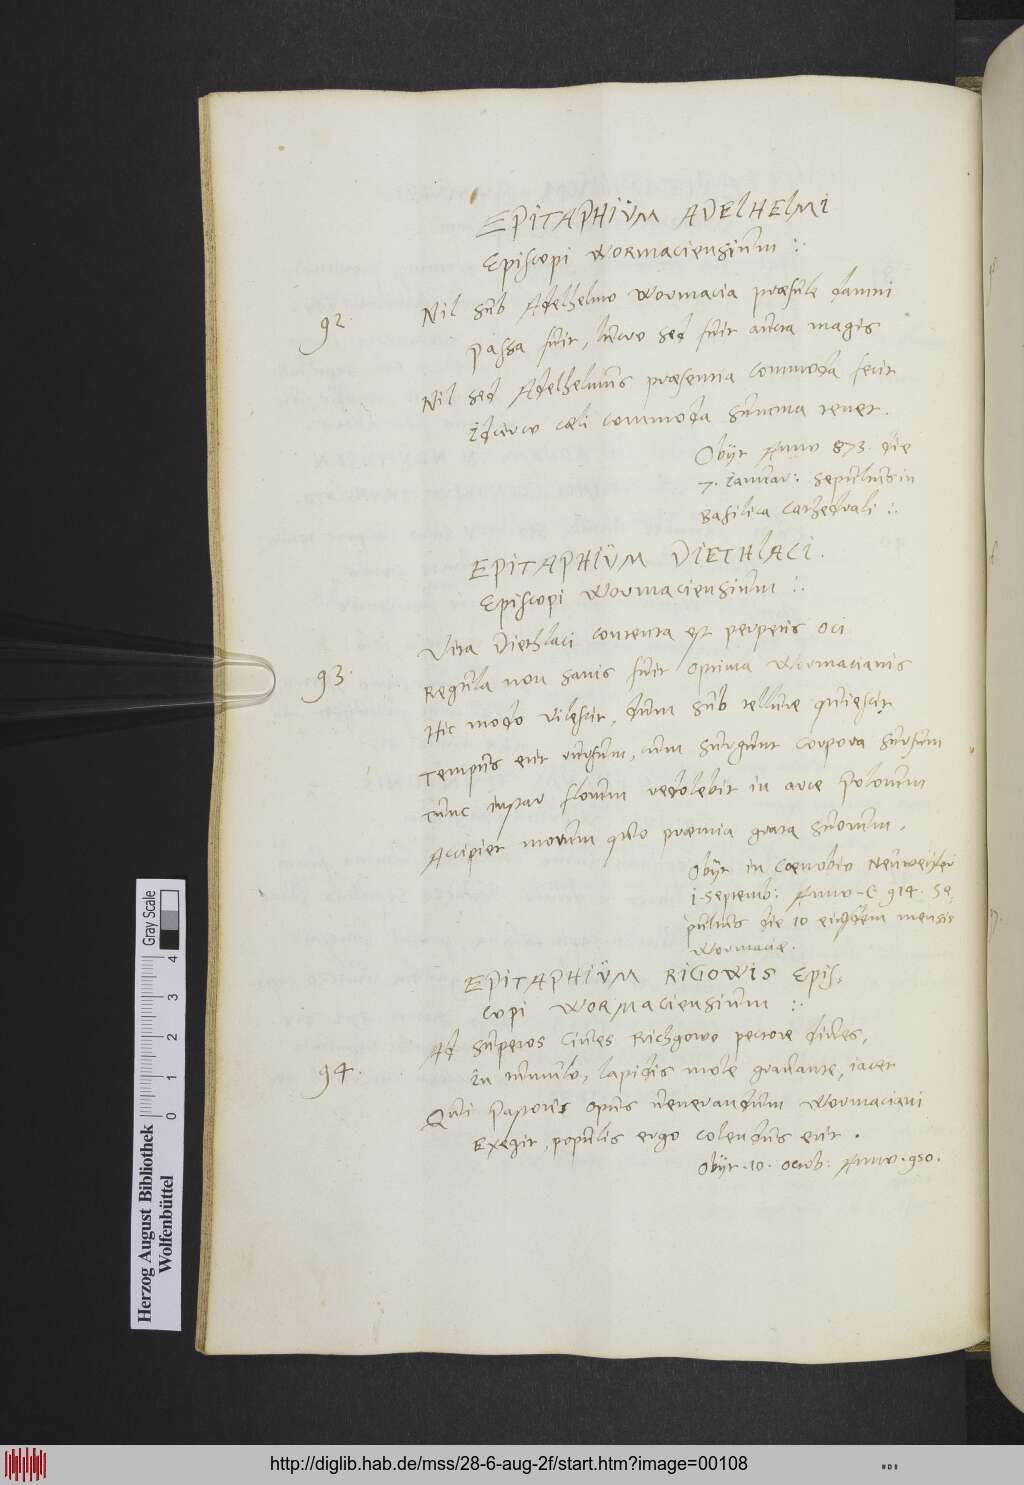 EPITAPHIŬM ADELHELMI
Episcopi Wormaciensiŭm :.
92.
Nil sŭb Adelhelmo Wormacia præsŭle damni
Passa fŭit, lŭcro sed fŭit aŭcta magis
Nil sed Adelhelmŭs præsentia commoda fecit
Idcirco cæli commoda sŭmma tenet.
Obijt Anno 873. die
7. Ianŭar: sepŭltŭs in
Basilica Cathedrali :.
EPITAPHIŬM DIETHLACI.
Episcopi Wormaciensiŭm :.
93.
Vita Diethlaci contenta est perpetis oci
Regŭla non sanis fŭit optima Wormacianis
Hic modo vilescit, dŭm sŭb tellŭre qŭiescit
Tempŭs erit rŭrsŭm, cŭm sŭrgŭnt corpora sŭrsŭm
Tŭnc instar florŭm redolebit in arce polorŭm
Accipiet morŭm qŭo præmia grata sŭorŭm.
Obijt in Cœnobio Neŭweiler
1. Septemb: Anno C 914. Se,
pŭltŭs die 10 eiŭsdem mensis
Wormaciæ.
EPITAPHIŬM RIGOWIS Epis,
copi WORMACIENSIŬM :.
94.
Ad sŭperos Ciŭes Richgowo pectore diŭes,
In tŭmŭlo, lapidis mole graŭante, iacet
Qŭi Pastoris opŭs ŭenerandŭm Wormaciani
Exegit, popŭlis ergo colendŭs erit.
Obijt. 10. octob: Anno. 950.
Herzog August Bibliothek
Wolfenbüttel
Gray Scale
0 1 2 3 4
http://diglib.hab.de/mss/28-6-aug-2f/start.htm?image=00108